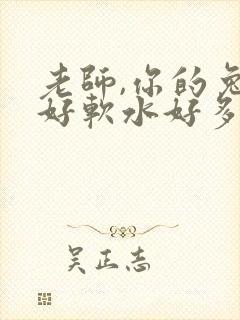 老師,你的兔
好軟水好多
吳正志